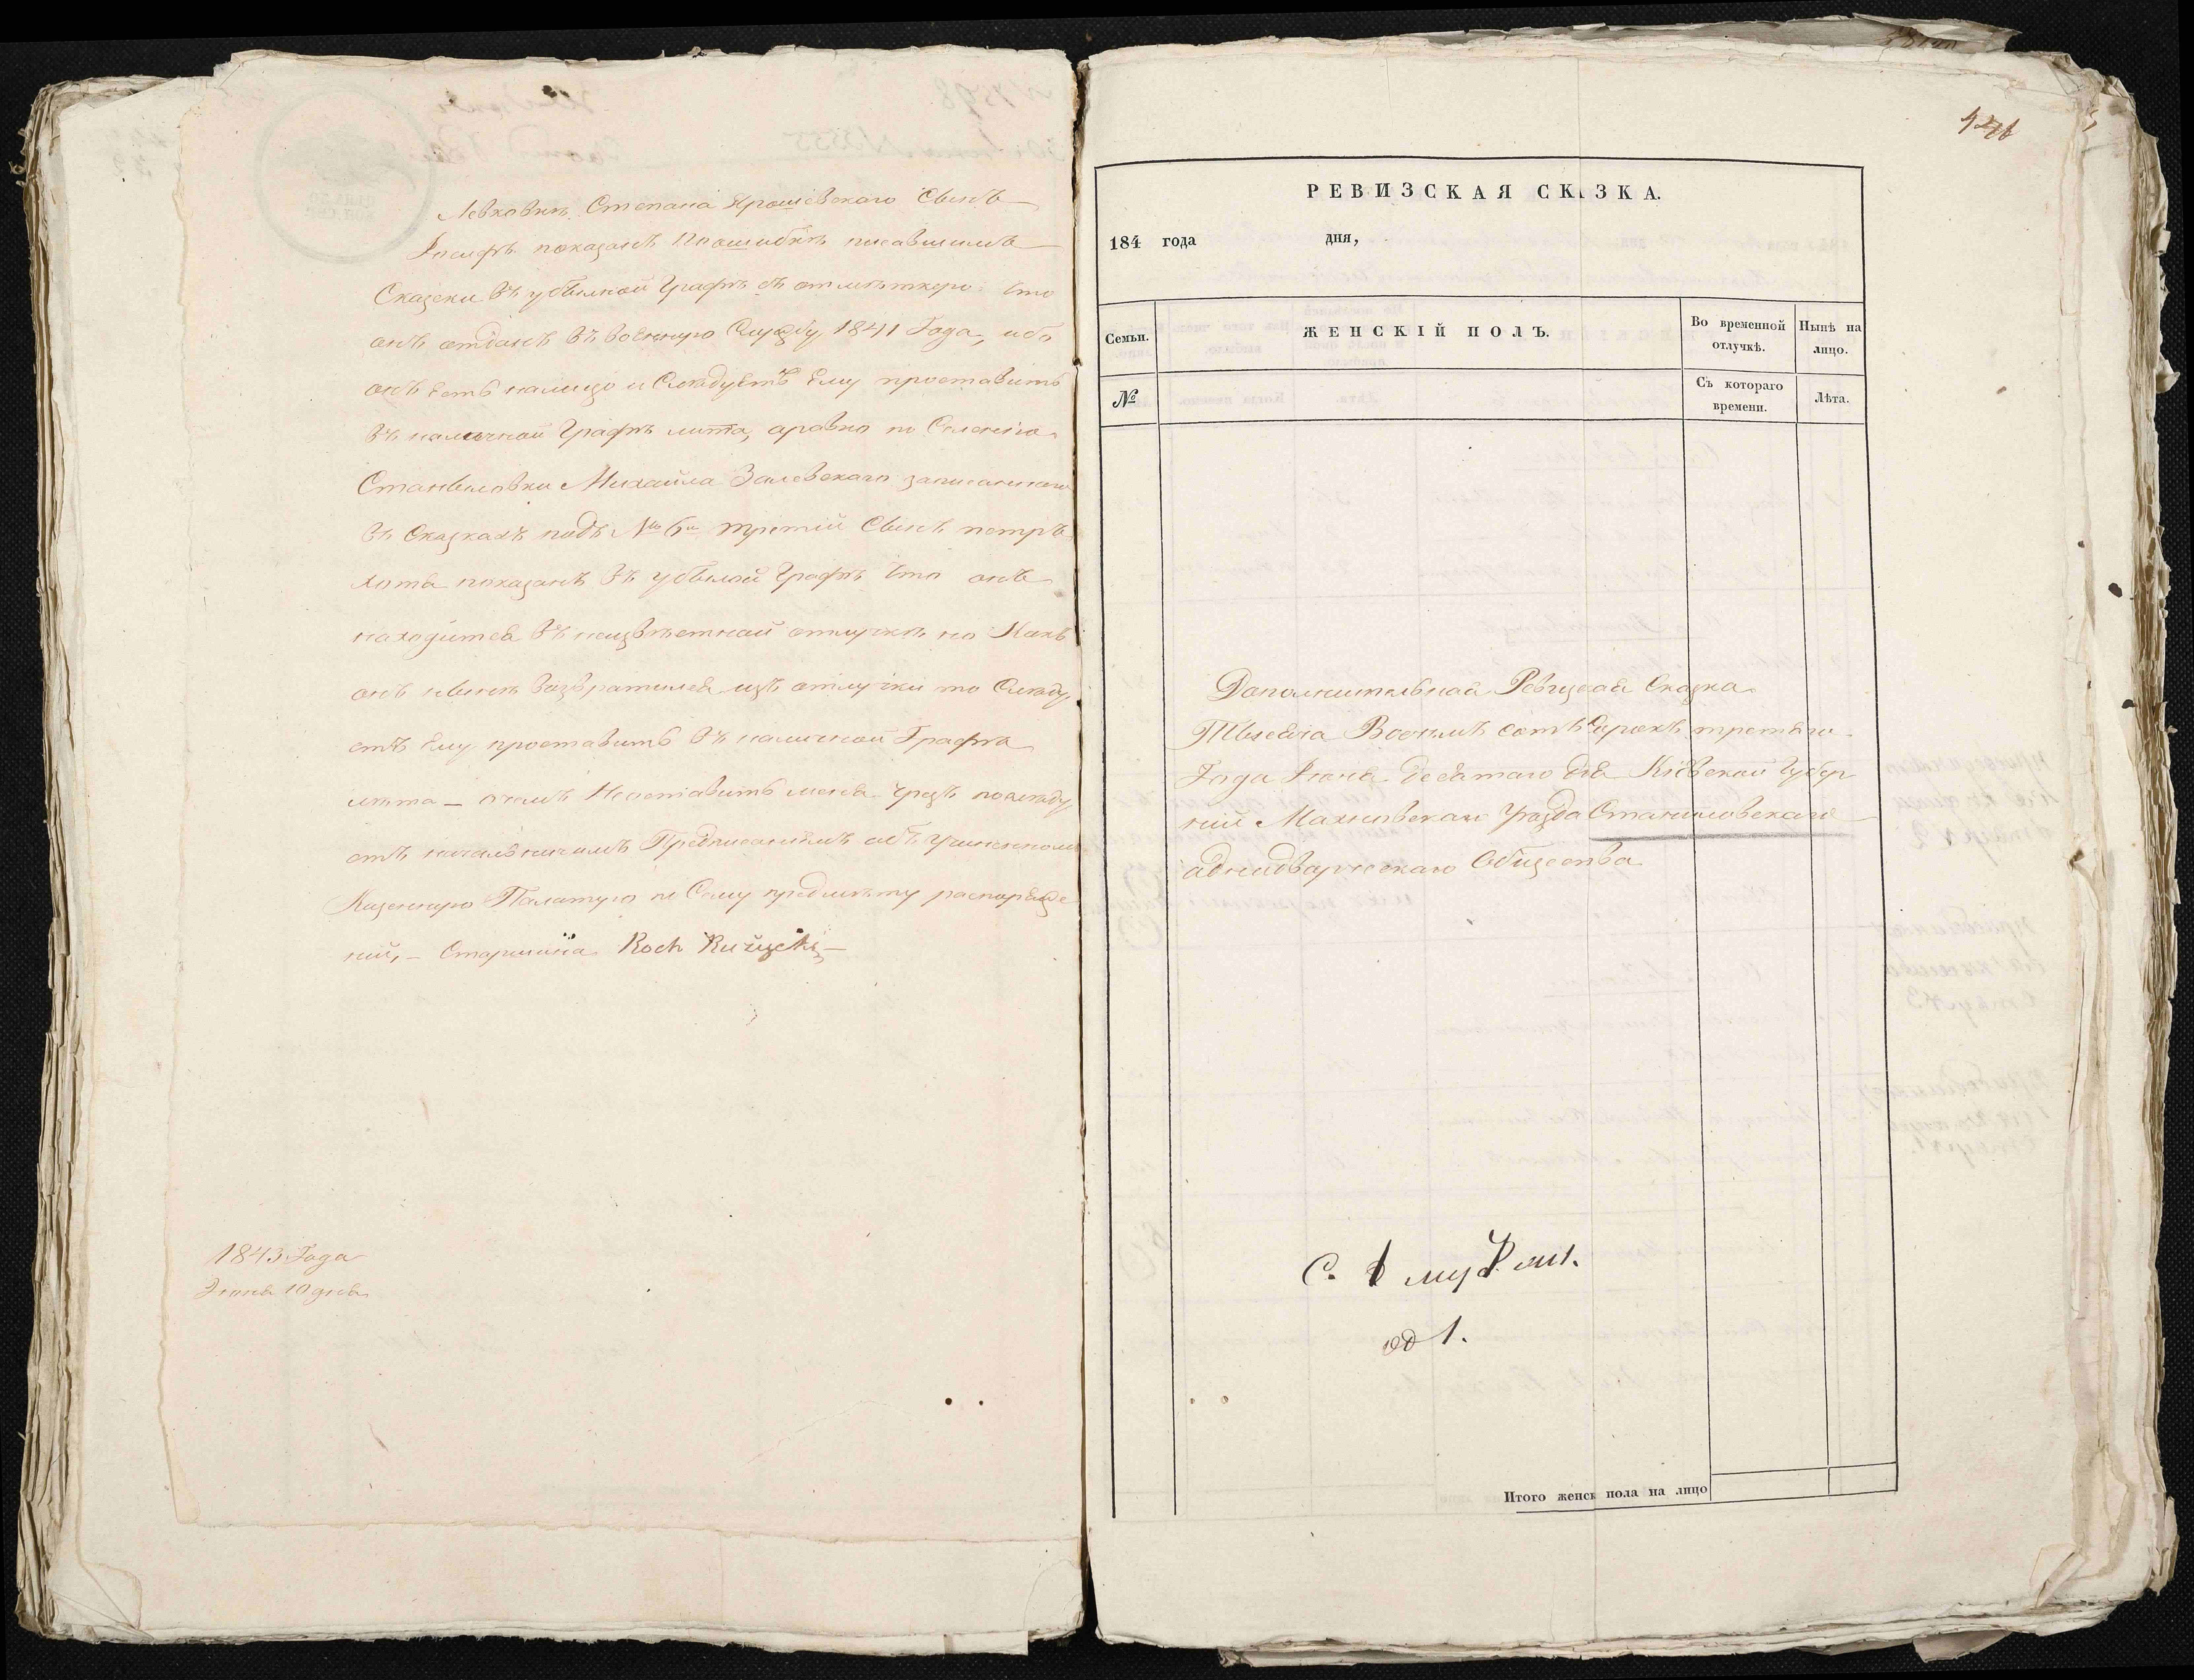 Левковки Степана Ярошевскаго Сынъ
Іосифъ показанъ По ошибкѣ писавшимъ
Сказски въ убылой Графѣ съ отмѣткою что
онъ отданъ въ военную Службу 1841 Года, ибо
онъ есть налицо и Слѣдуетъ Ему проставить
въ наличной Графѣ лита, аравно по Селенію
Станиловки Михайла Залевскаго записаннаго
въ Сказкахъ подъ №мъ 6мъ третій Сынъ петръ
хотя показанъ въ убылой Графѣ что онъ
находится въ неизвѣстной отлучкѣ но Какъ
онъ нынѣ возвратился изъ отлучки то Слѣду
етъ Ему проставить въ наличной Графѣ
лѣта — очемъ Неоставить меня чрезъ кого слѣду
етъ начальничимъ Предписаніемъ объ учиненном
Казенную Палатую по Сему предмѣту распоряже
ній, — Старшина Roch
1843 Года
Іюня 10 дня
РЕВИЗСКАЯ СКАЗКА.
184 года дня,
Семьи. ЖЕНСКІЙ ПОЛЪ. Во временной отлучкѣ. Нынѣ на лицо.
№ Съ котораго времени. Лѣта.
Дополнительная Ревизская Сказка
Тысяча Восемъ сотъ Сорокъ третяго
Года Іюня десятаго дня Кіевской Губер
ніи Махновскаго уѣзда Станиловскаго
аднодворческаго Общества
С. 1 муж
од 1.
Итого женск пола на лицо